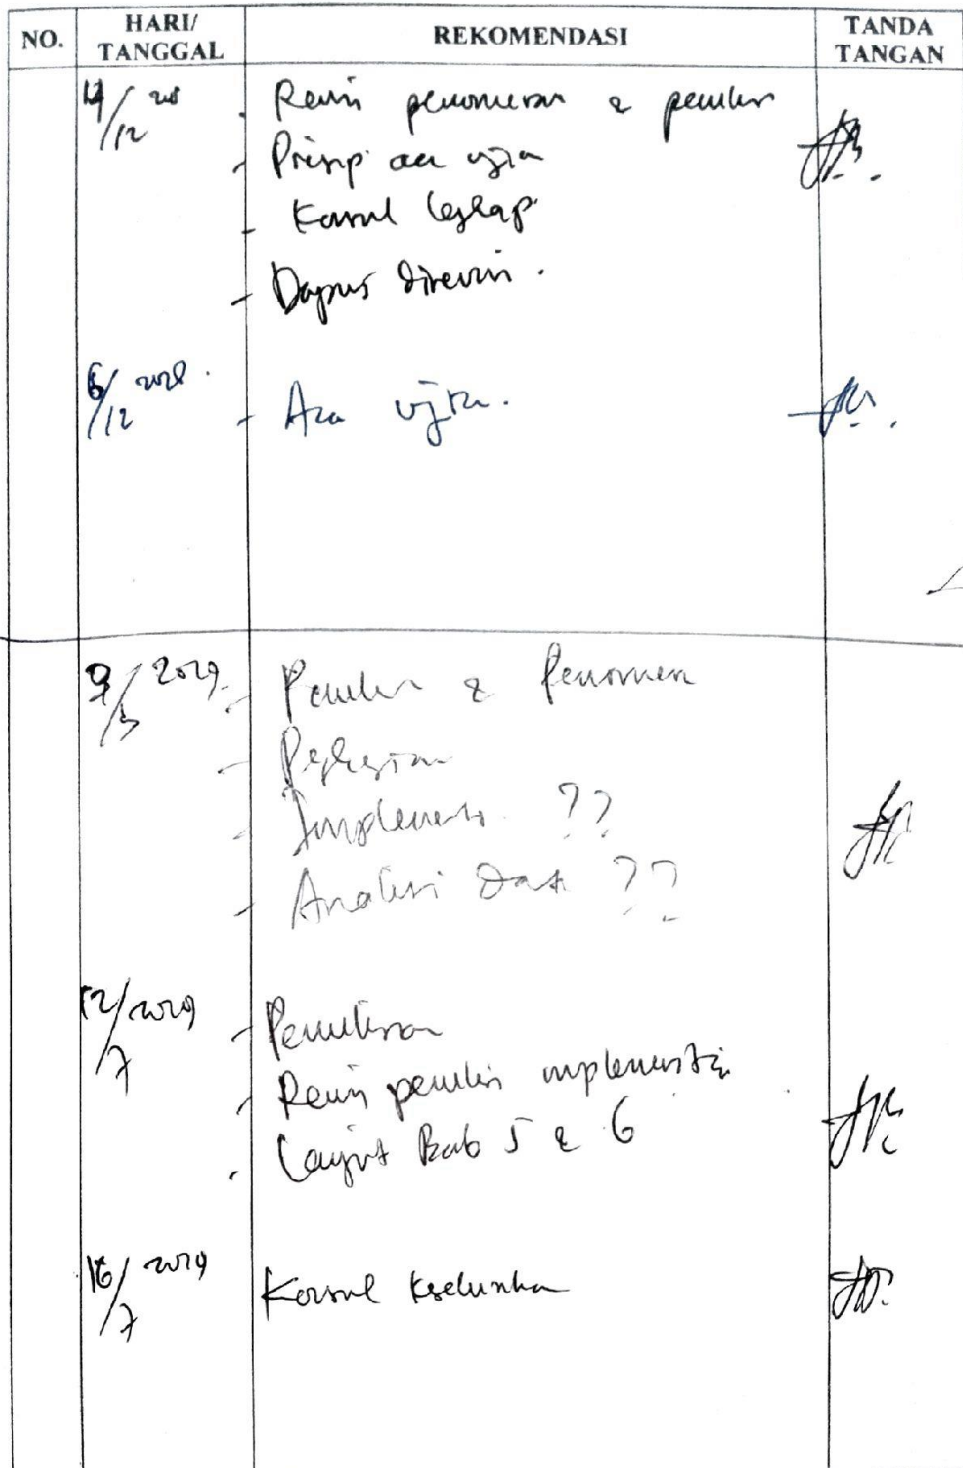 NO. HARI/ TANGGAL REKOMENDASI TANDA TANGAN
/12
- Revisi penomoran & penulisan
- Prinsip acc ujian
- Konsul lengkap
- Dapus direvisi.
6/12 2018.
- Acc ujian.
2019.
- Penulisan & Penomoran
-
- Implementasi ??
- Analisi Data ??
12/7 2019
- Penulisan
- Revisi penulisan implementasi
- Lanjut Bab 5 & 6
16/7 2019
Konsul Keseluruhan